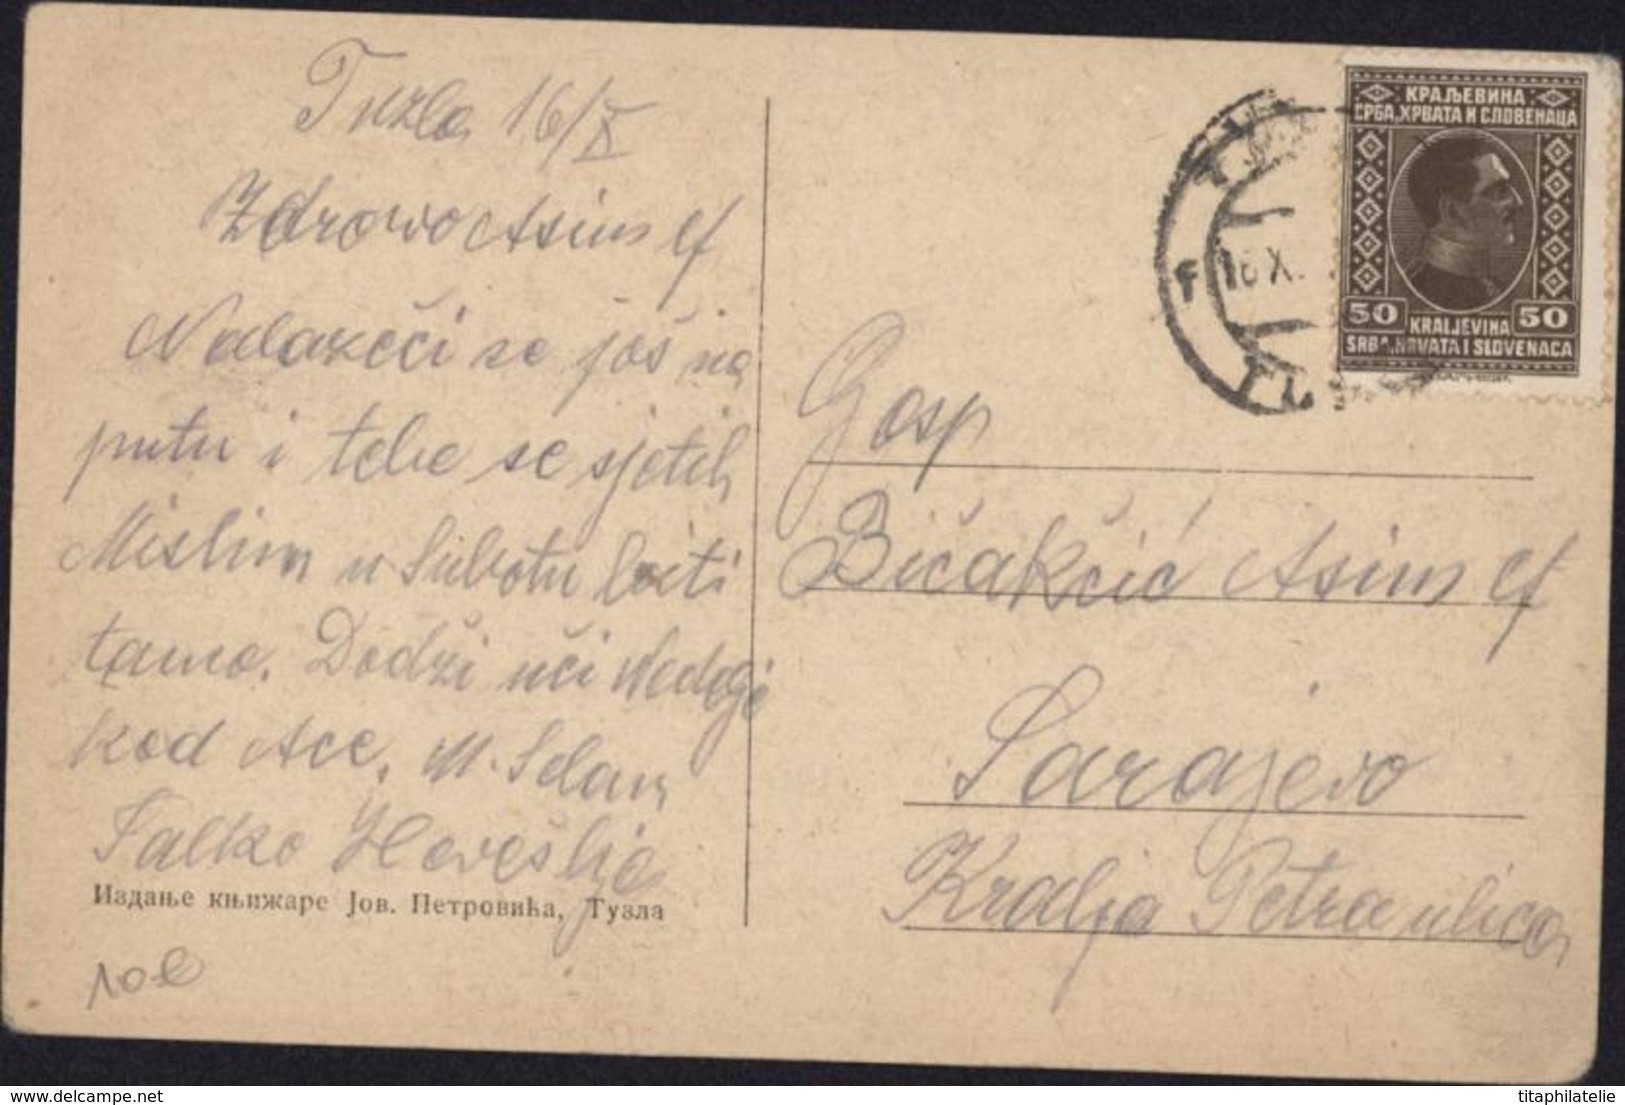 Tuzla 16/X
Zdravo Asim ef
Nalazeći se još na
putu i tebe se sjetih
Mislim u Subotu biti
tamo. Dodži uči
kod Ace. M. Selam
Salko
Издање књижаре Јов. Петровића, Тузла
10 e
КРАЉЕВИНА
СРБА, ХРВАТА И СЛОВЕНАЦА
50 KRALJEVINA 50
SRBA, HRVATA I SLOVENACA
F 16 X.
Gosp
Bičakčić Asim ef
Sarajevo
Kralja Petra ulica
delcampe.net
titaphilatelie